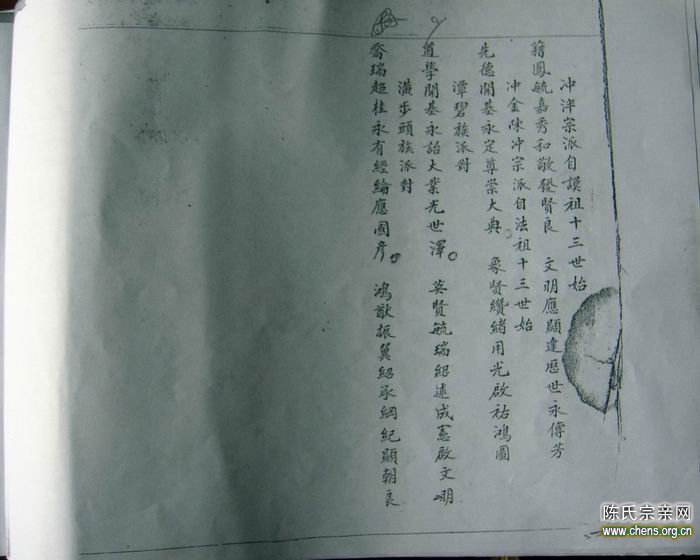 冲泮宗派自謨祖十三世始
籍鳳毓嘉秀和敬發賢良　文明應顯達歷世永傳芳
冲金陳冲宗派自法祖十三世始
先德開基永定尊崇大典。象賢纘緒用光啟祐鴻圖
潭碧族派對
道學開基永詒大業光世澤。英賢毓瑞紹述成憲啟文明
潢步頭族派對
喬瑞超桂永有經綸應國彥。鴻猷振翼紹承綱紀顯朝良
陈氏宗亲网
www.chens.org.cn